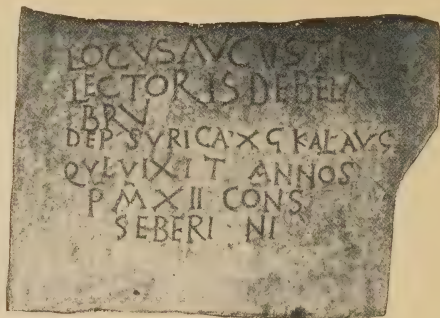 LOCVS AVGVSTI
LECTORIS DE BELA
BRV
DEP SVRICA XG KAL AVG
QVI VIXIT ANNOS
P M XII CONS
SEBERINI